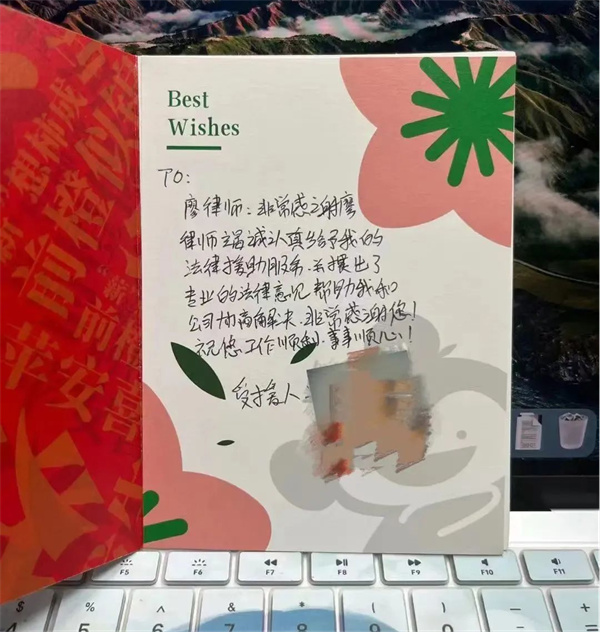 Best
Wishes
TO:
廖律师：非常感谢廖
律师竭诚认真给予我的
法律援助服务，并提出了
专业的法律意见，帮助我和
公司协商解决，非常感谢您！
祝您工作顺利，事事顺心！
受援人
想柿成
前橙似锦
F5
F6
F7
F8
F9
F10
F11
%
^
&
*
(
)
5
6
7
8
9
0